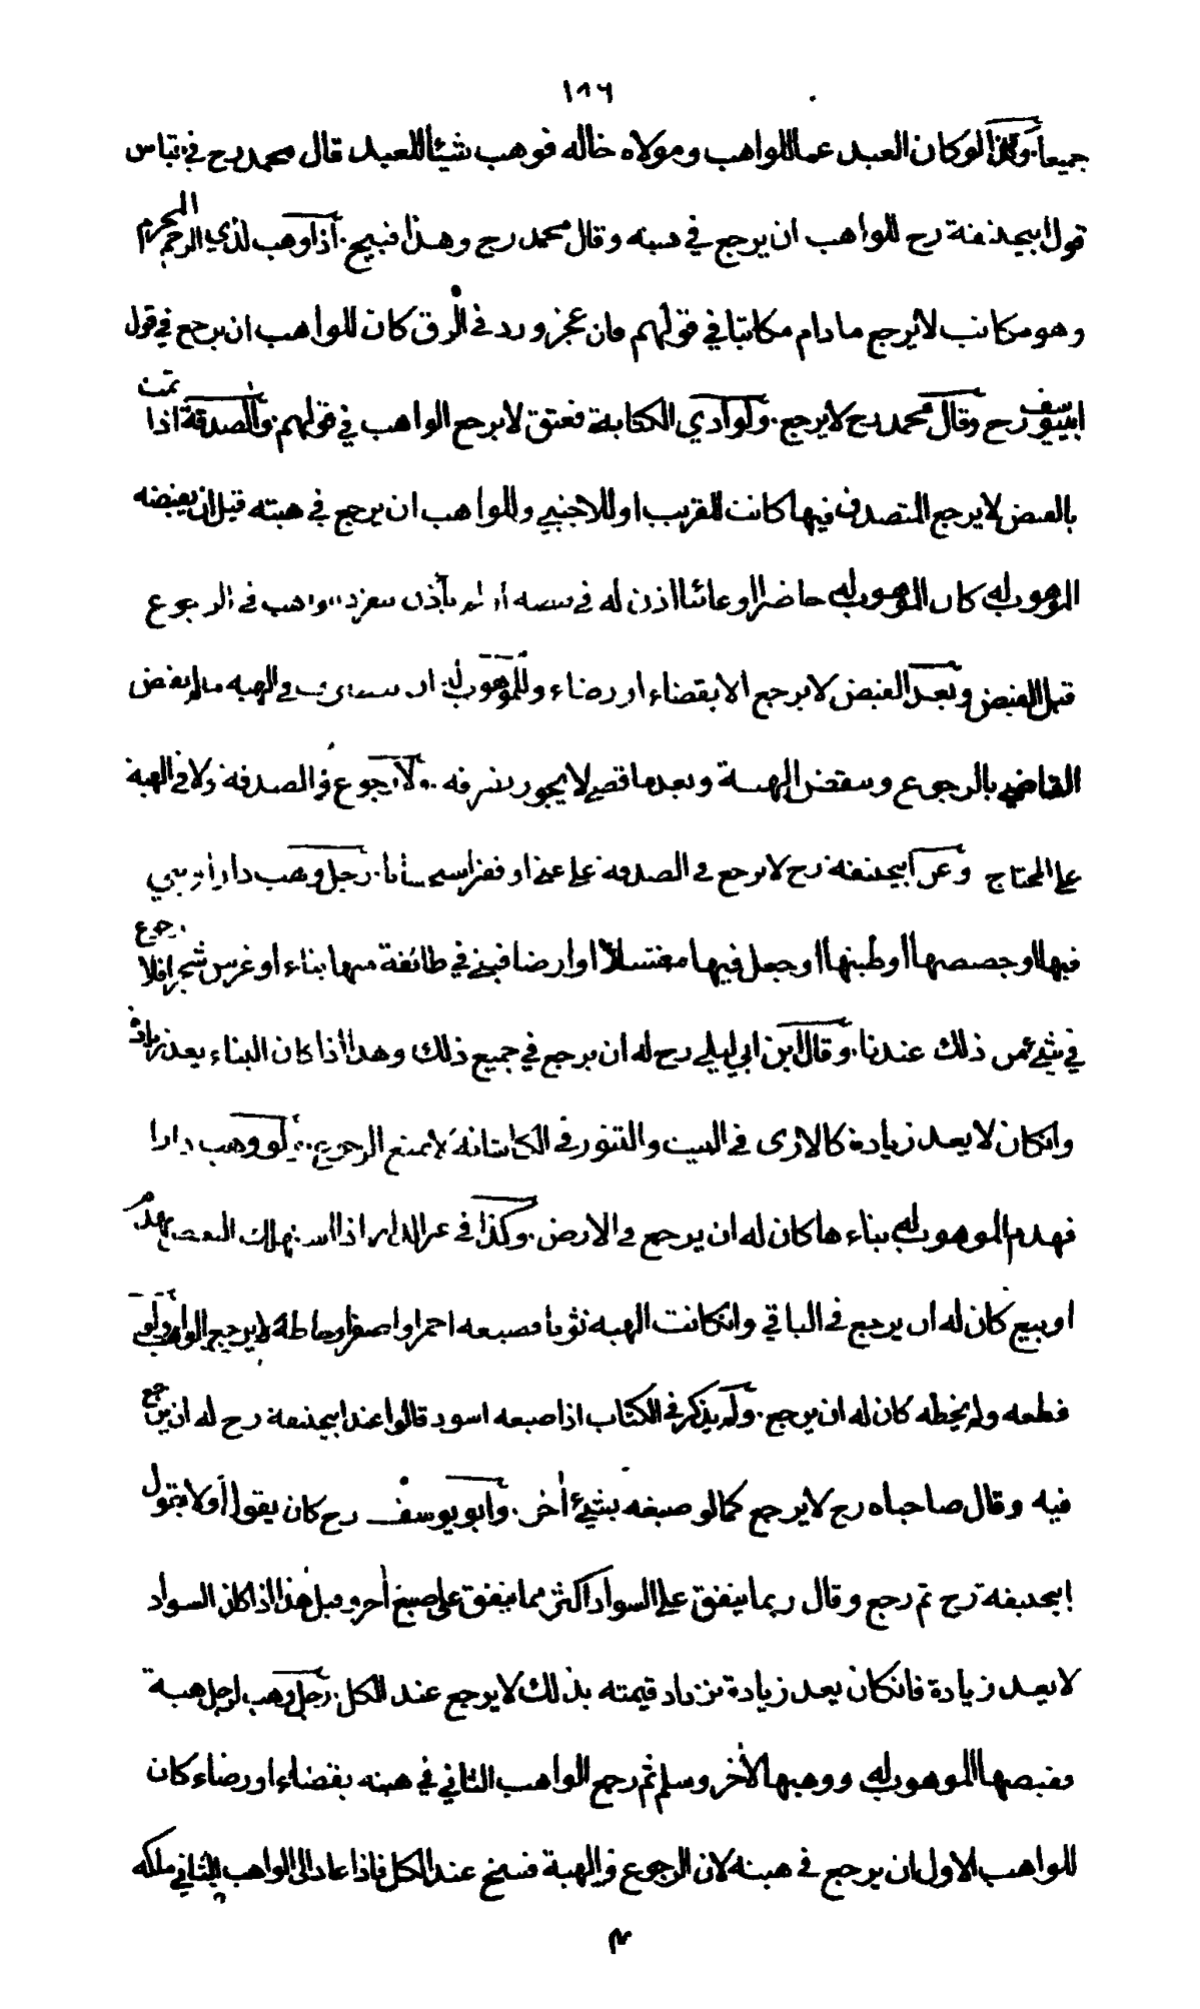 ١٨٦
جميعا وكذا لو كان العبد عما للواهب ومولاه خاله فوهب شيئا للعبد قال محمد رح في قياس
قول ابيحنيفة رح للواهب ان يرجع في هبته وقال محمد رح وهذا قبيح اذا وهب لذي الرحم المحرم
وهو مكاتب لا يرجع ما دام مكاتبا في قولهم فان عجز ورد في الرق كان للواهب ان يرجع في قول
ابييوسف رح وقال محمد رح لا يرجع ولو ادي الكتابة فعتق لا يرجع الواهب في قولهم والصدقة اذا تمت
بالقبض لا يرجع المتصدق فيها كانت للقريب او للاجنبي وللواهب ان يرجع في هبته قبل ان يقبضه
الموهوب له كان الموهوب له حاضرا او غائبا اذن له في قبضه او لم ياذن الواهب في الرجوع
قبل القبض وبعد القبض لا يرجع الا بقضاء او رضاء وللموهوب له ان في الهبه ما لم يقض
القاضي بالرجوع وينقض الهبة وبعد ما قضي لا يجوز تصرفه ولا رجوع في الصدقة ولا في الهبة
علي المحتاج وعن ابيحنيفة رح لا يرجع في الصدقه علي غني او فقير استحسانا رجل وهب دارا فبني
فيها او جصصها او طينها او جعل فيها مغتسلا او ارضا فبني في طائفة منها بناء او غرس شجرا فلا رجوع
في شيئ من ذلك عندنا وقال ابن ابي ليلي رح له ان يرجع في جميع ذلك وهذا اذا كان البناء يعد زيادة
وانكان لا يعد زيادة كالاري في البيت والتنور في الكاشانة لا يمنع الرجوع ولو وهب دارا
فهدم الموهوب له بناءها كان له ان يرجع في الارض وكذا في غير الدار اذا استهلك البعض بهدم
او بيع كان له ان يرجع في الباقي وانكانت الهبه ثوبا فصبعه احمر او اصفر او خاطه لا يرجع الواهب ولو
قطعه ولم يخطه كان له ان يرجع ولم يذكر في الكتاب اذا صبعه اسود قالوا عند ابيحنيفة رح له ان يرجع
فيه وقال صاحباه رح لا يرجع كما لو صبغه بشيئ اخر وابو يوسف رح كان يقول اولا بقول
ابيحنيفة رح ثم رجع وقال ربما ينفق علي السواد اكثر مما ينفق علي صبغ اخر وقيل هذا اذا كان السواد
لا يعد زيادة فانكان يعد زيادة تزداد قيمته بذلك لا يرجع عند الكل رجل وهب لرجل هبة
فقبضها الموهوب له ووهبها لآخر وسلم ثم رجع الواهب الثاني في هبته بقضاء او رضاء كان
للواهب الاول ان يرجع في هبته لان الرجوع في الهبة فسخ عند الكل فاذا عاد الي الواهب الثاني ملكه